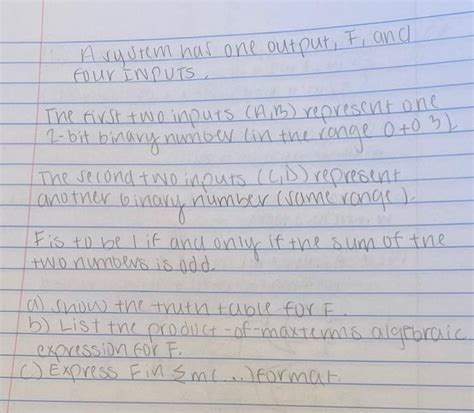 A system has one output, F, and
four INPUTS.
The first two inputs (A,B) represent one
2-bit binary number (in the range 0 to 3).
The second two inputs (C,D) represent
another binary number (same range).
F is to be 1 if and only if the sum of the
two numbers is odd.
a) Show the truth table for F.
b) List the product-of-maxterms algebraic
expression for F.
c) Express F in Σm(...) format.